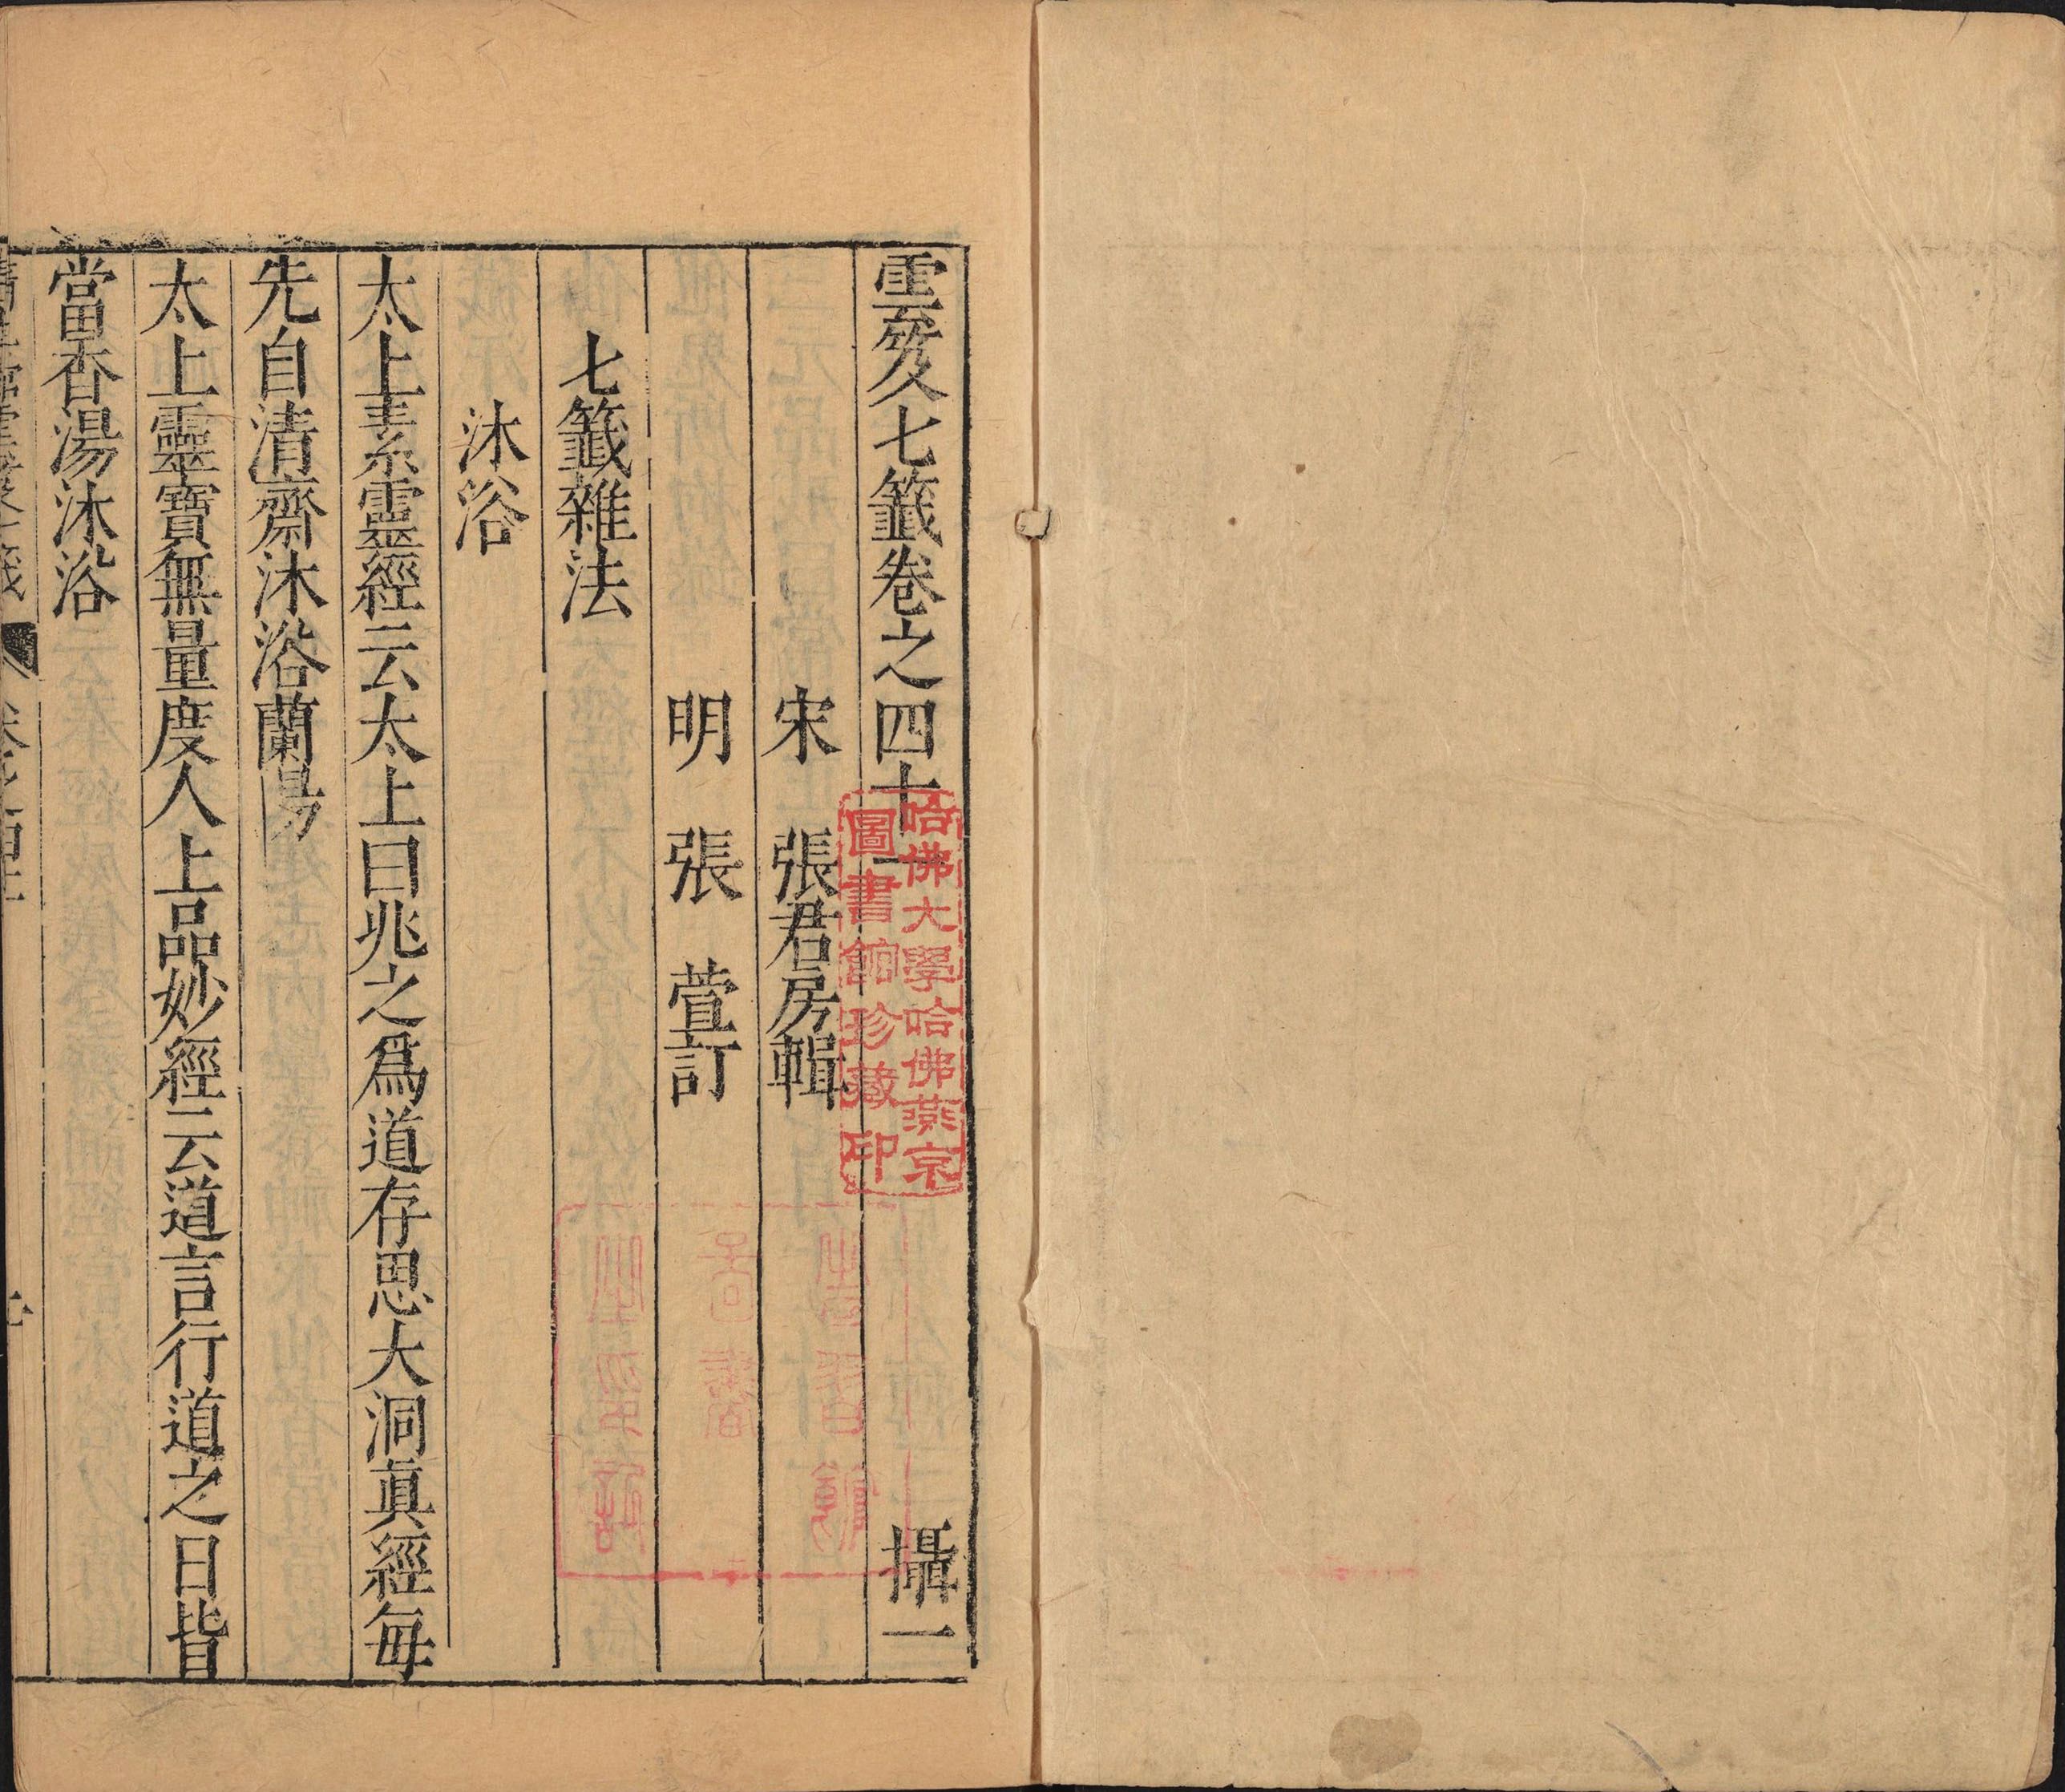 雲笈七籤卷之四十一
攝一
宋 張君房輯
明 張 萱訂
七籤雜法
沐浴
太上素靈經云太上曰兆之爲道存思大洞眞經每
先自清齋沐浴蘭湯
太上靈寶無量度人上品妙經云道言行道之日皆
當香湯沐浴
哈佛大學哈佛燕京
圖書館珍藏印